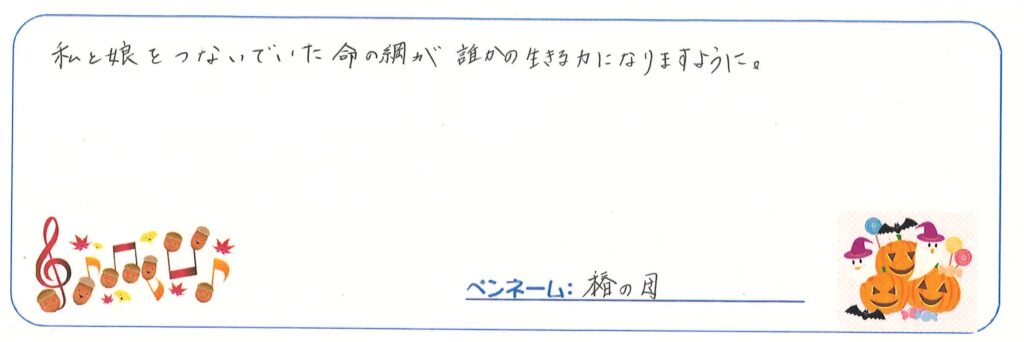 私と娘をつないでいた命の綱が 誰かの生きる力になりますように。
ペンネーム: 椿の母